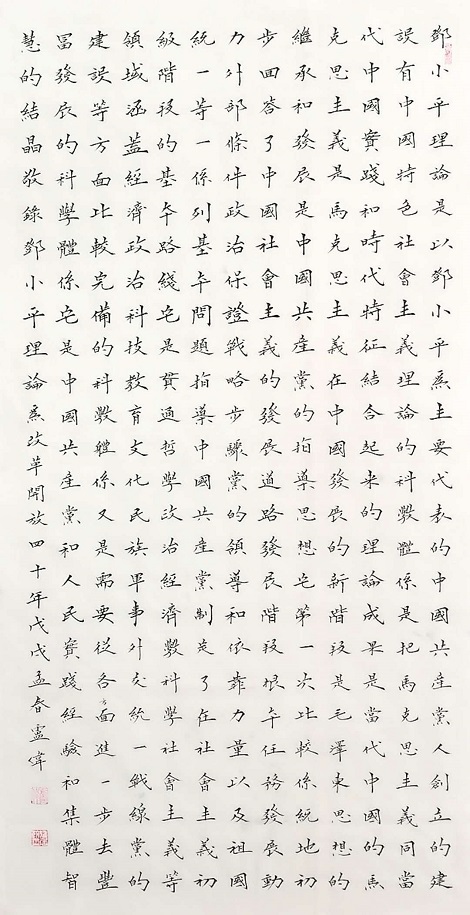 鄧小平理論是以鄧小平爲主要代表的中國共產黨人創立的建
設有中國特色社會主義理論的科學體係是把馬克思主義同當
代中國實踐和時代特征結合起来的理論成果是當代中國的馬
克思主義是馬克思主義在中國發展的新階段是毛澤東思想的
繼承和發展是中國共産黨的指導思想它第一次比較係統地初
步回答了中國社會主義的發展道路發展階段根本任務發展動
力外部條件政治保證戰略步驟黨的領導和依靠力量以及祖國
統一等一係列基本問題指導中國共産黨制定了在社會主義初
級階段的基本路綫它是貫通哲學政治經濟學科學社會主義等
領域涵蓋經濟政治科技教育文化民族軍事外交統一戰線黨的
建設等方面比較完備的科學體係又是需要從各方面進一步去豐
富發展的科學體係它是中國共産黨和人民實踐經驗和集體智
慧的結晶敬錄鄧小平理論爲改革開放四十年戊戌孟春盧偉